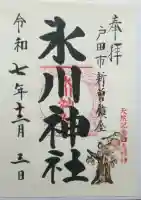 奉拝
戸田市新曽鎮座
氷川神社
令和七年十二月三日